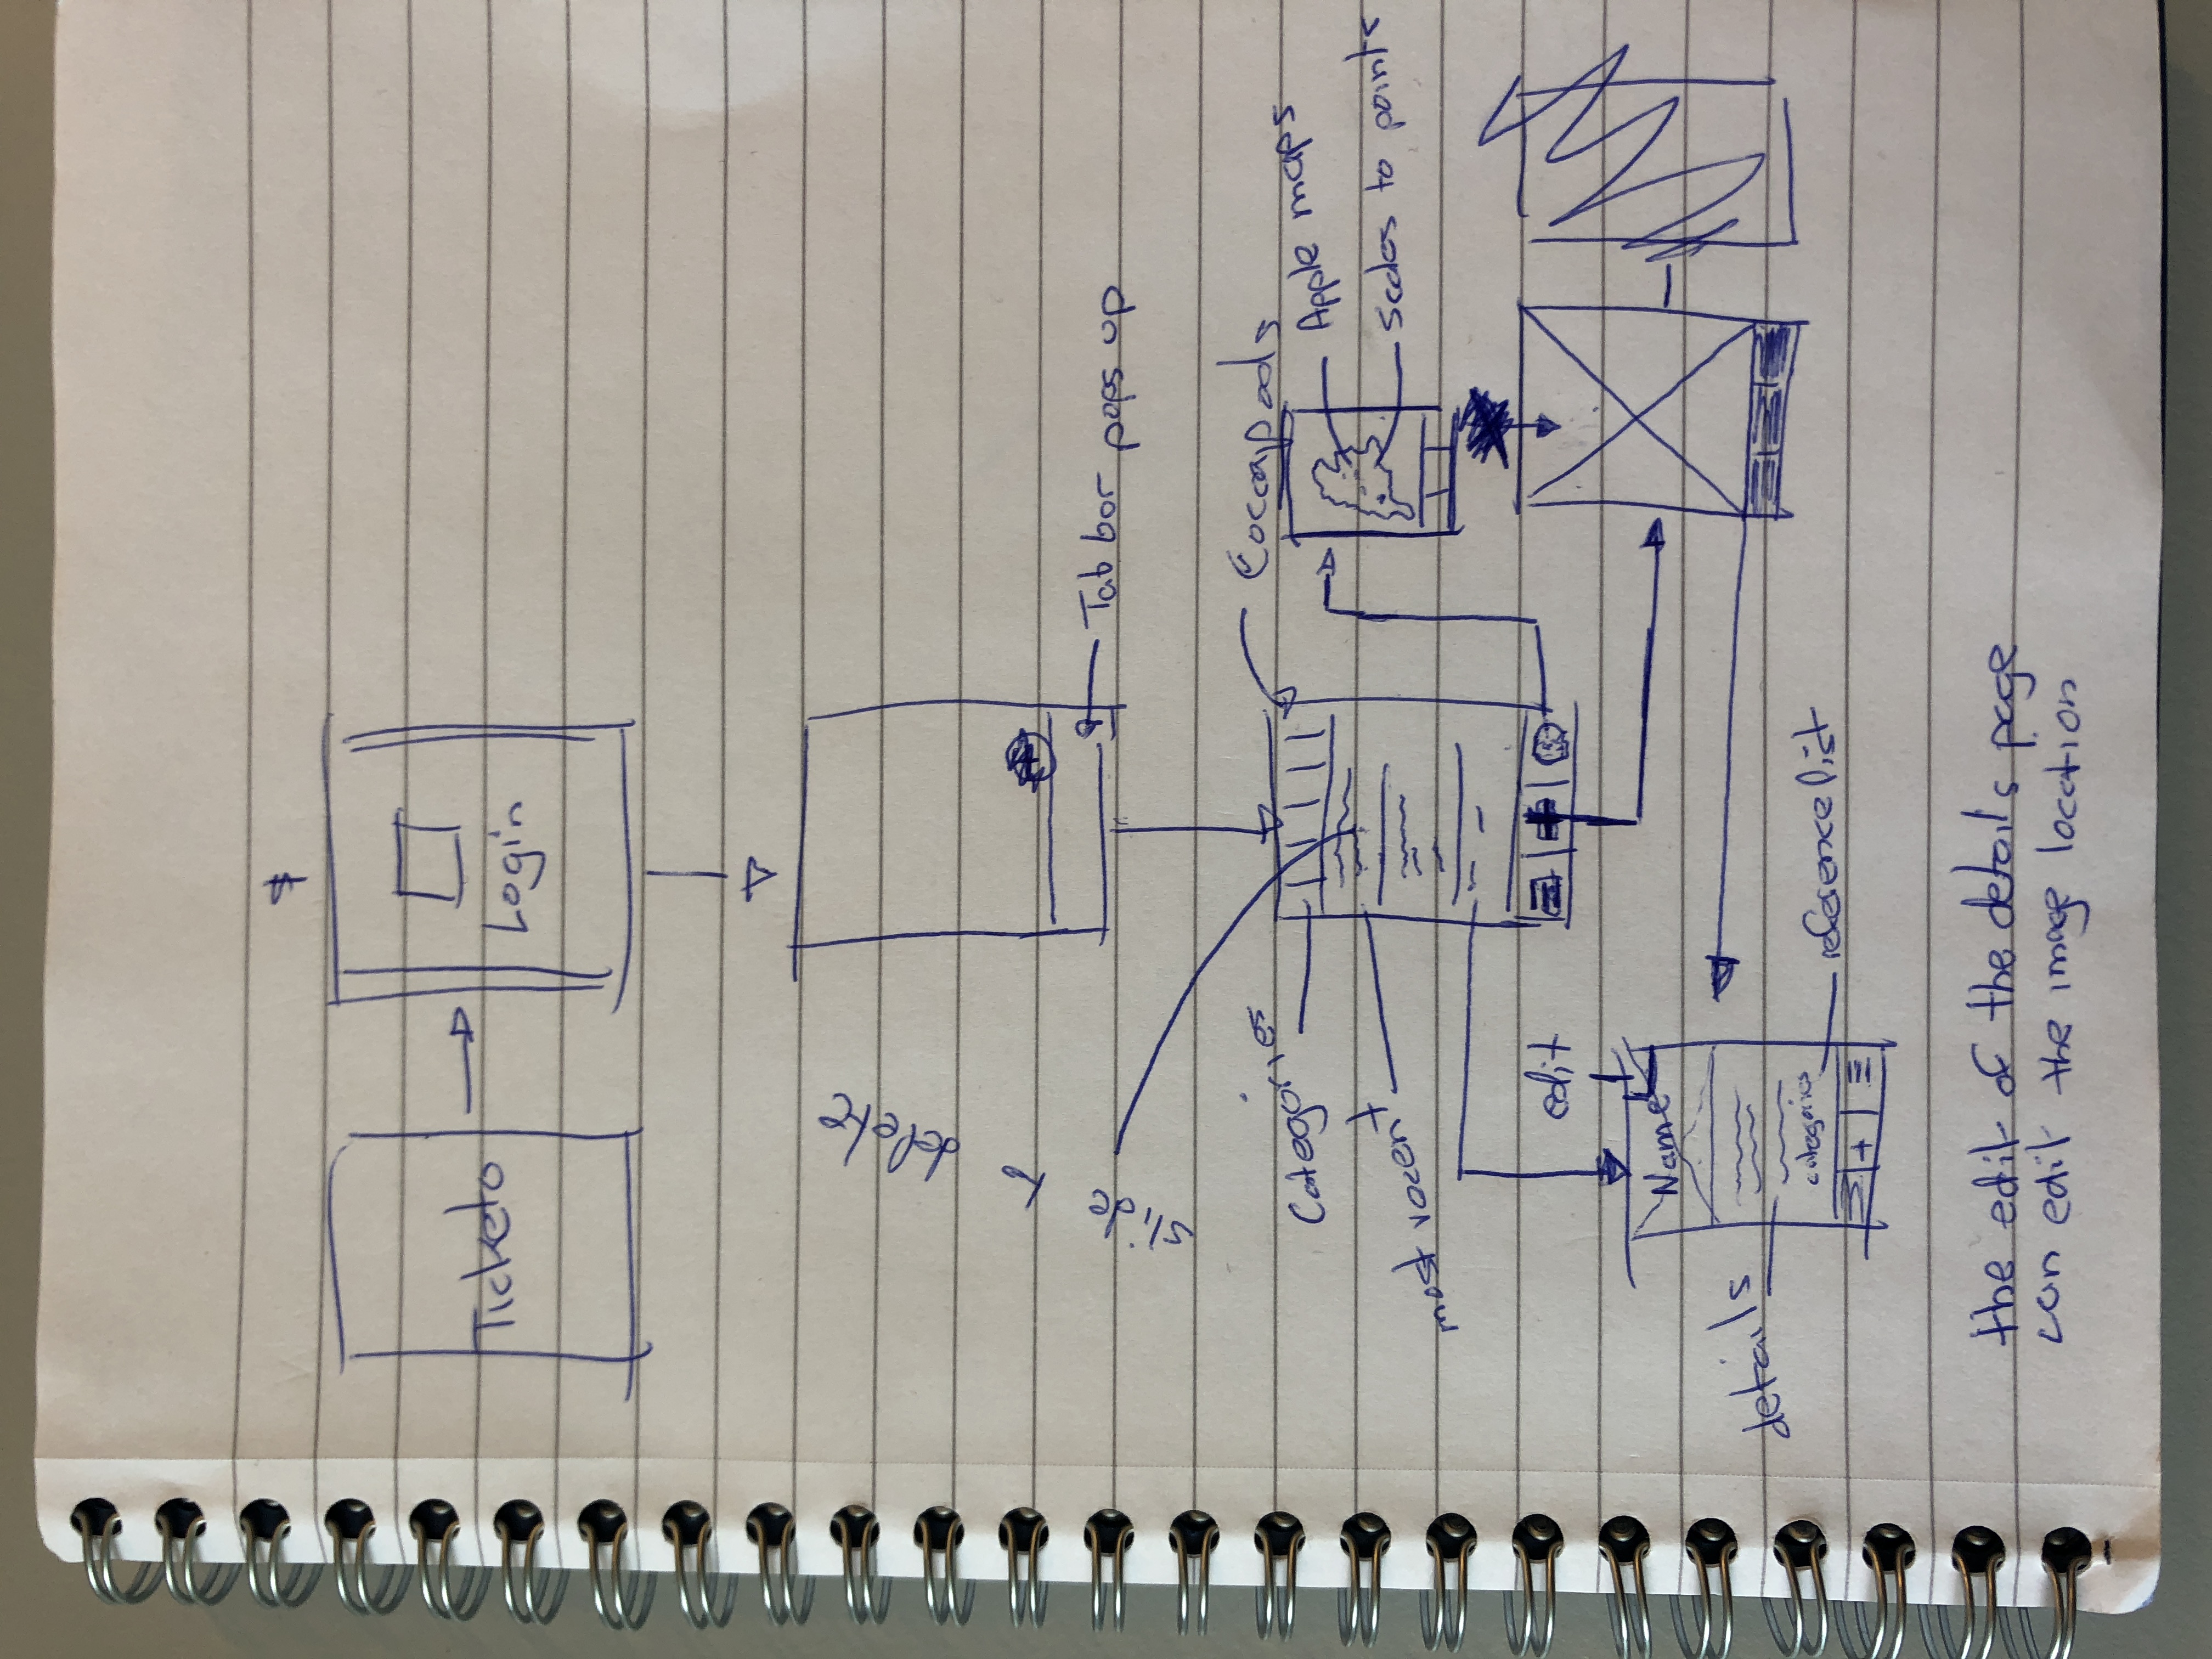 $
Ticketo
Login
slide to delete
Tab bar pops up
Cocoapods
Categories
Apple maps
scales to points
most recent
edit
Name
details
categories
reference list
+
the edit of the details page
can edit the image location